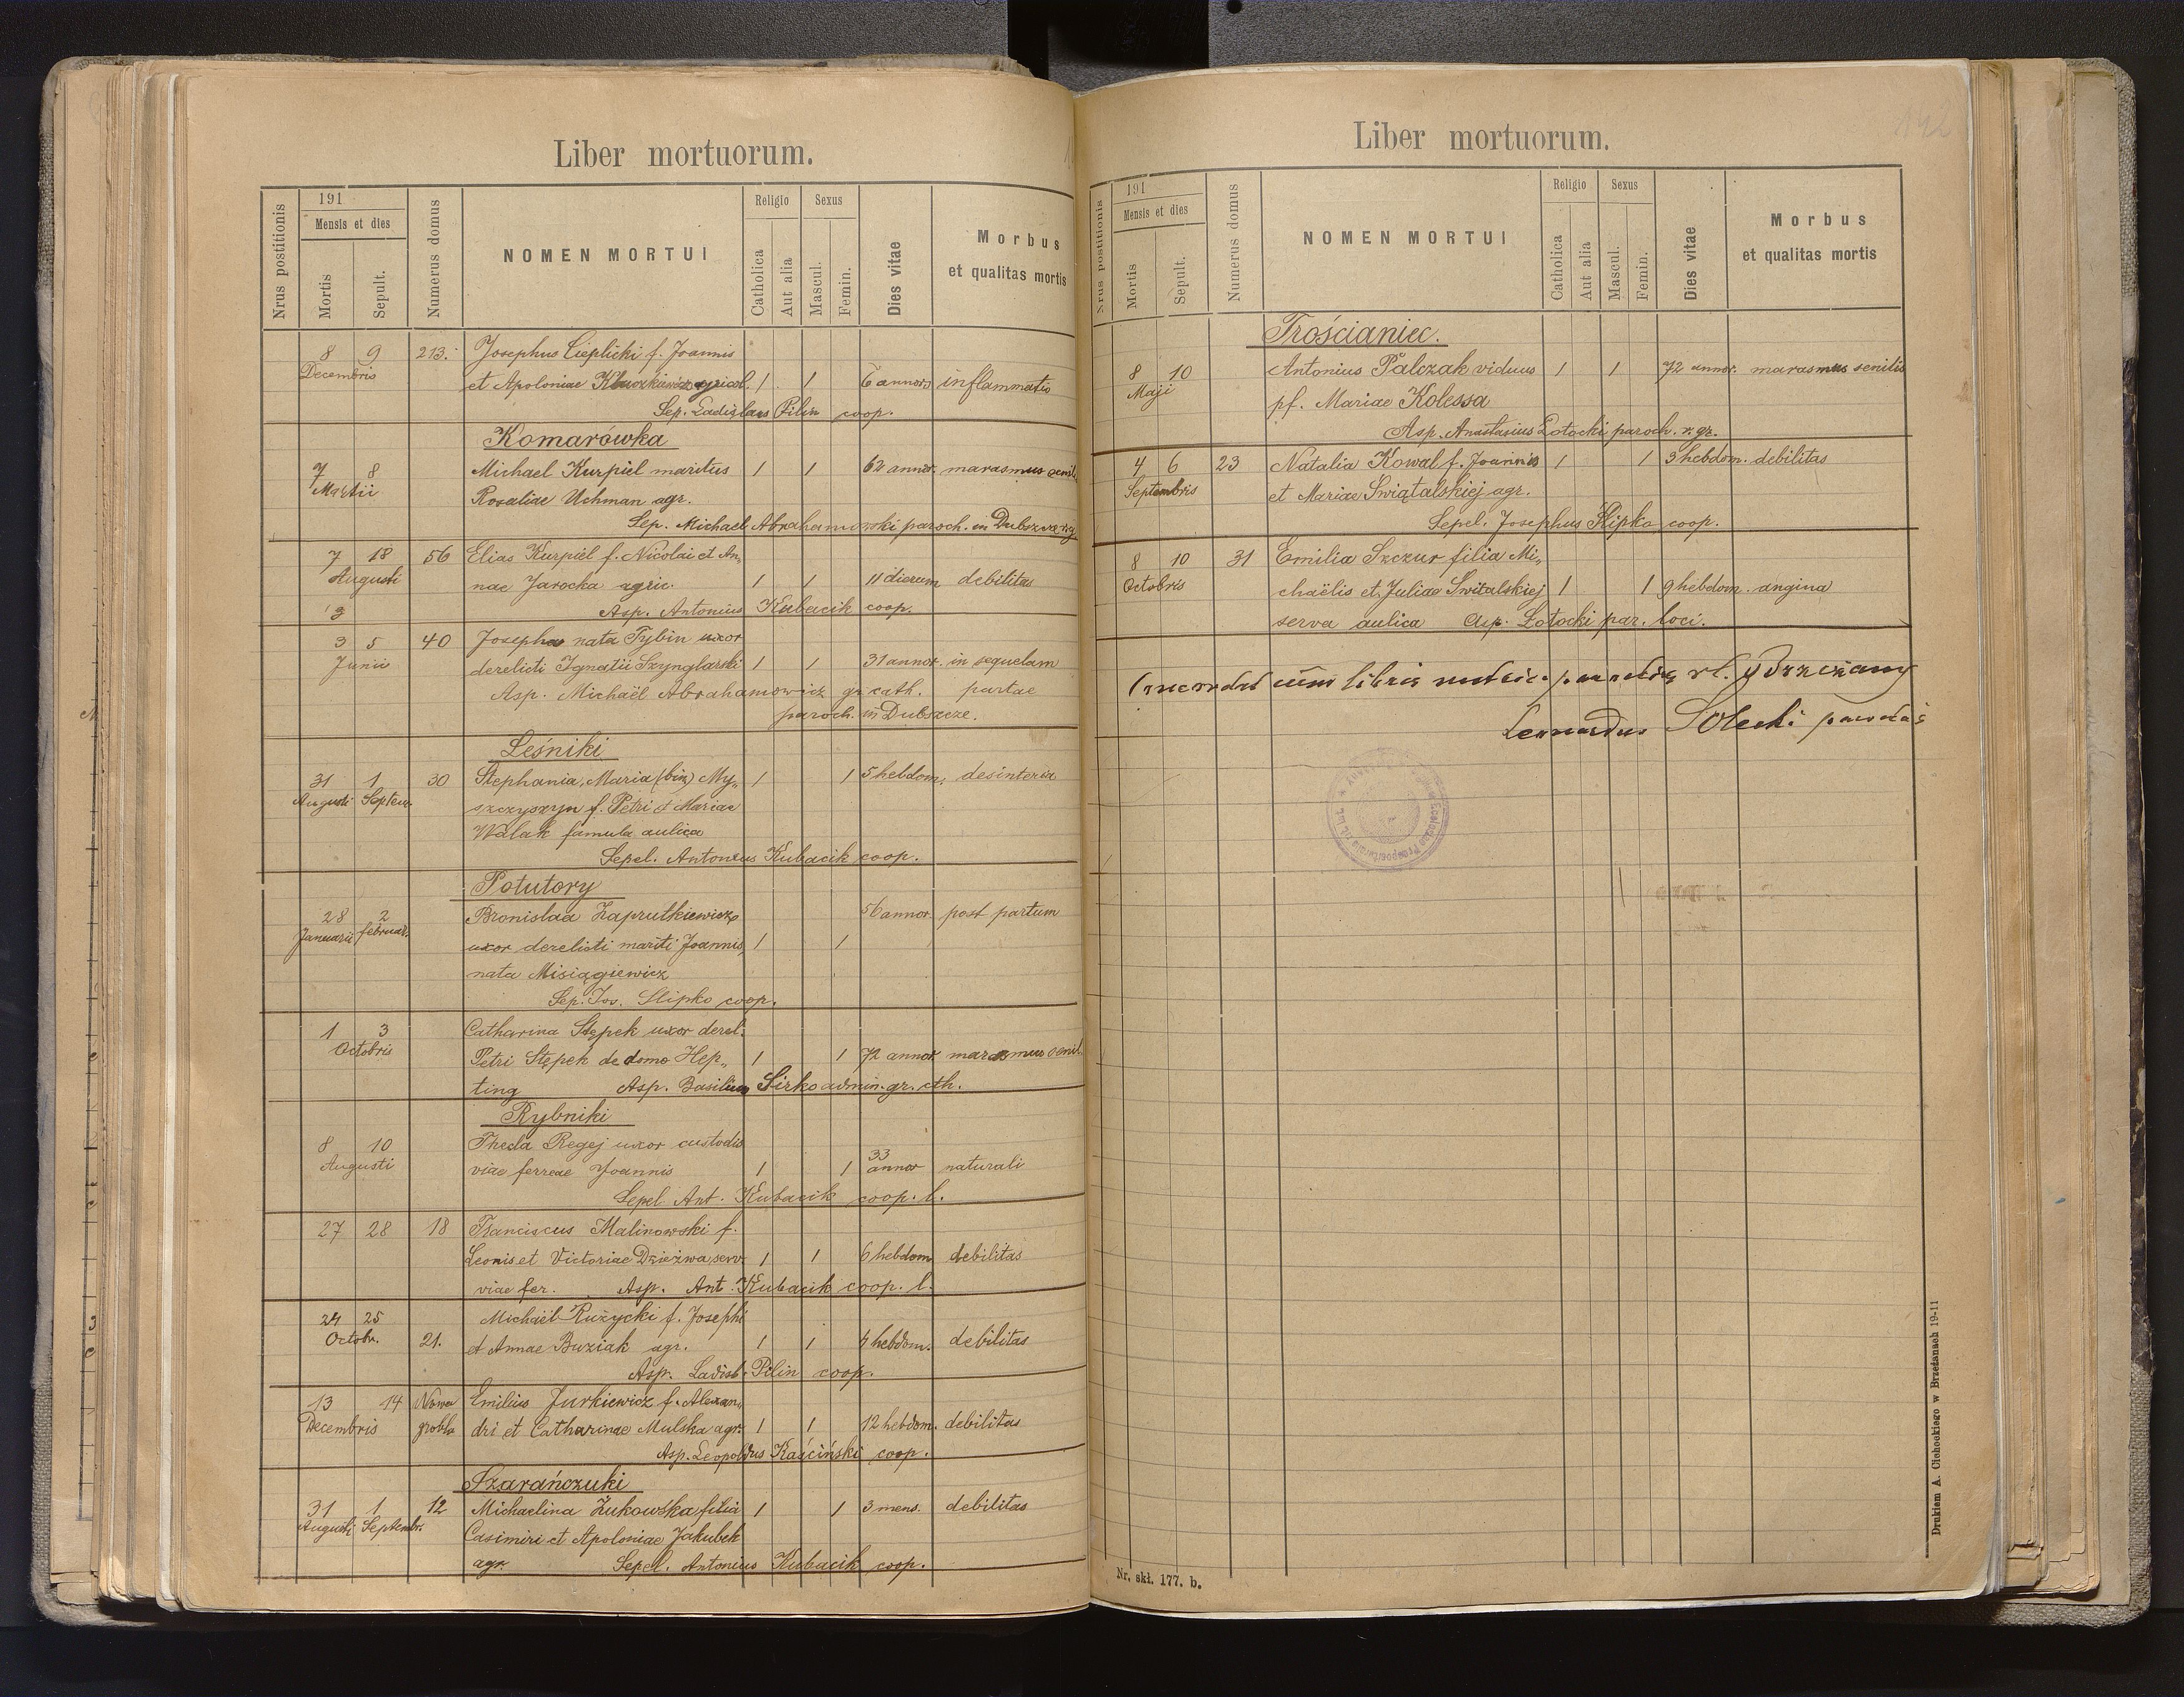 Liber mortuorum.
Nrus postitionis
191
Mensis et dies
Mortis
Sepult.
Numerus domus
NOMEN MORTUI
Religio
Catholica
Aut alia
Sexus
Mascul.
Femin.
Dies vitae
Morbus
et qualitas mortis
8 9 213. Josephus Cieplicki f. Joannis
Decembris et Apoloniae agricol. 1 1 6 annors inflammatio
Sep. Ladislaus Pilin coop.
Komarówka
7 8 Michael Kurpiel maritus 1 1 62 annor. marasmus senil.
Martii Rosaliae Uchman agr.
Sep. Michael Abrahamowski paroch. in
7 18 56 Elias Kurpiel f. Nicolai et An„
Augusti nae Jarocka agric. 1 1 11 dierum debilitas
Asp. Antonius Kubacik coop.
3 5 40 Josepha nata Tybin uxor
Junii derelicti Ignatii Szynglarski 1 1 31 annor. in sequelam
Asp. Michaël Abrahamowicz gr. cath. partae
paroch. in Dubszcze.
Leśniki
31 1 30 Stephania, Maria (bin) My„ 1 1 5 hebdom. desinteria
Augusti Septem. szczyszyn f. Petri et Mariae
Walak famula aulica
Sepel. Antonius Kubacik coop.
Potutory
28 2 Bronislaa Zaprutkiewicz 56 annor. post partum
Januarii februar. uxor derelicti mariti Joannis, 1 1
nata Misiągiewicz
Sep. Jos. Slipko coop.
1 3 Catharina Stępek uxor derel.
Octobris Petri Stępek de domo Hep„ 1 1 72 annor marasmus senil.
ting Asp. Basilius Sirko admin. gr. cth.
Rybniki
8 10 Thecla Regej uxor custodis
Augusti viae ferreae Joannis 1 1 33 annor naturali
Sepel Ant. Kubacik coop. l.
27 28 18 Franciscus Malinowski f.
Leonis et Victoriae Dzieżwa, serv. 1 1 6 hebdom debilitas
viae fer. Asp. Ant. Kubacik coop. l.
24 25 Michaël Rużycki f. Josephi
Octobr. 21. et Annae Buziak agr. 1 1 4 hebdom. debilitas
Asp. Ladisl. Pilin coop.
13 14 Nowa Emilius Jurkiewicz f. Alexan„
Decembris grobla dri et Catharinae Mulska agr. 1 1 12 hebdom. debilitas
Asp. Leopoldus Kaściński coop.
Szarańczuki
31 1 12 Michaelina Żukowska, filia 1 1 3 mens. debilitas
Augusti Septembr. Casimiri et Apoloniae Jakubek
agr. Sepel. Antonius Kubacik coop.
142
Liber mortuorum.
Nrus postitionis
191
Mensis et dies
Mortis
Sepult.
Numerus domus
NOMEN MORTUI
Religio
Catholica
Aut alia
Sexus
Mascul.
Femin.
Dies vitae
Morbus
et qualitas mortis
Trościaniec.
8 10 Antonius Palczak viduus 1 1 72 annor. marasmus senilis
Maji pf. Mariae Kolessa
Asp. Anastasius Łotocki paroch. r. gr.
4 6 23 Natalia Kowal f. Joannis 1 1 3 hebdom. debilitas
Septembris et Mariae Swiątalskiej agr.
Sepel. Josephus Slipko coop.
8 10 31 Emilia Szczur filia Mi„
Octobris chaëlis et Juliae Switalskiej 1 1 9 hebdom. angina
serva aulica Asp. Łotocki par. loci.
Concordat cum libris Brzeżany
Leonardus Solecki parochus
Nr. skł. 177. b.
Drukiem A. Cichockiego w Brzeżanach 19-11